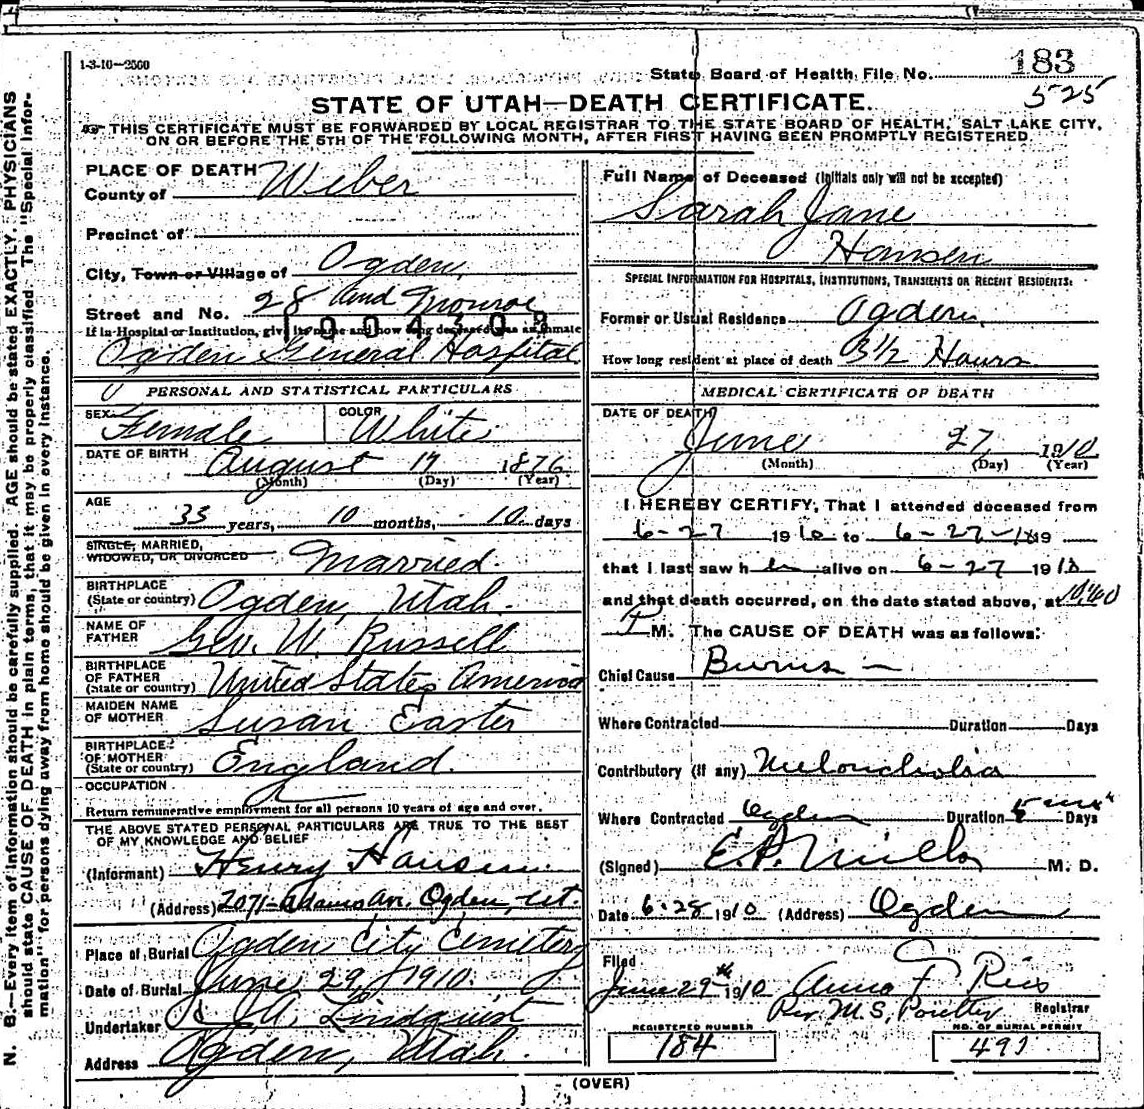 1-3-10—2500
State Board of Health File No. 183
525
STATE OF UTAH—DEATH CERTIFICATE.
THIS CERTIFICATE MUST BE FORWARDED BY LOCAL REGISTRAR TO THE STATE BOARD OF HEALTH, SALT LAKE CITY,
ON OR BEFORE THE 5TH OF THE FOLLOWING MONTH, AFTER FIRST HAVING BEEN PROMPTLY REGISTERED.
N. B.—Every item of information should be carefully supplied. AGE should be stated EXACTLY. PHYSICIANS
should state CAUSE OF DEATH in plain terms, that it may be properly classified. The "Special Infor-
mation" for persons dying away from home should be given in every instance.
PLACE OF DEATH
County of Weber
Precinct of
City, Town or Village of Ogden
Street and No. 28 and Monroe
If in Hospital or Institution, give its name and how long deceased was an inmate
1004309
Ogden General Hospital
PERSONAL AND STATISTICAL PARTICULARS
SEX Female COLOR White
DATE OF BIRTH August 17 1876
(Month) (Day) (Year)
AGE
33 years, 10 months, 10 days
SINGLE, MARRIED,
WIDOWED, OR DIVORCED Married
BIRTHPLACE
(State or country) Ogden, Utah.
NAME OF
FATHER Geo. W. Russell
BIRTHPLACE
OF FATHER
(State or country) United States America
MAIDEN NAME
OF MOTHER Susan Easter
BIRTHPLACE
OF MOTHER
(State or country) England.
OCCUPATION
Return remunerative employment for all persons 10 years of age and over.
THE ABOVE STATED PERSONAL PARTICULARS ARE TRUE TO THE BEST
OF MY KNOWLEDGE AND BELIEF
(Informant) Henry Hansen
(Address) 2071 Adams Av. Ogden, Ut.
Place of Burial Ogden City Cemetery
Date of Burial June 29, 1910.
Undertaker Lindquist
Address Ogden, Utah.
Full Name of Deceased (Initials only will not be accepted)
Sarah Jane
Hansen
SPECIAL INFORMATION FOR HOSPITALS, INSTITUTIONS, TRANSIENTS OR RECENT RESIDENTS:
Former or Usual Residence Ogden.
How long resident at place of death 3 1/2 Hours
MEDICAL CERTIFICATE OF DEATH
DATE OF DEATH
June 27 1910
(Month) (Day) (Year)
I HEREBY CERTIFY, That I attended deceased from
6-27 1910 to 6-27-10 19
that I last saw her alive on 6-27 1910
and that death occurred, on the date stated above, at 10:40
P M. The CAUSE OF DEATH was as follows:
Chief Cause Burns
Where Contracted Duration Days
Contributory (if any) Meloncholia
Where Contracted Ogden Duration Days
(Signed) E. P. Mills M. D.
Date 6-28 1910 (Address) Ogden
Filed
June 29th 1910 Anna F Ries
Per. M.S. Registrar
REGISTERED NUMBER
184
NO. OF BURIAL PERMIT
491
(OVER)